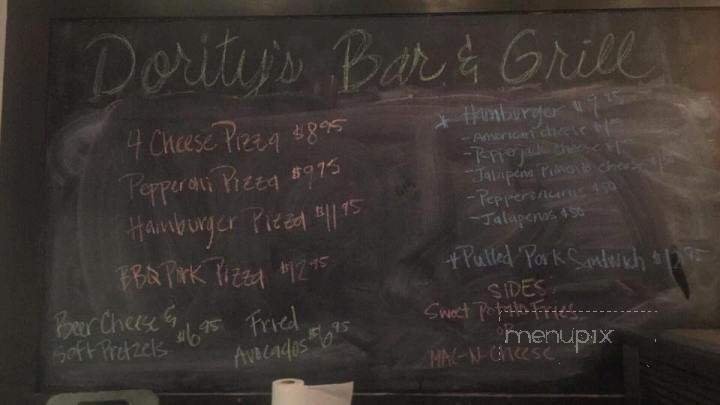 Dority's Bar & Grill
4 Cheese Pizza $8.95
Pepperoni Pizza $9.95
Hamburger Pizza $11.95
BBQ Pork Pizza $12.95
Beer Cheese &
Soft Pretzels $6.95
Fried
Avocados $6.95
* Hamburger $7.95
- American cheese $1
- Pepperjack cheese $1
- Jalapeno Pimento cheese
- Pepperoncinis $.50
- Jalapenos $.50
* Pulled Pork Sandwich
SIDES:
Sweet Potato Fries
or
MAC-N-Cheese
menupix